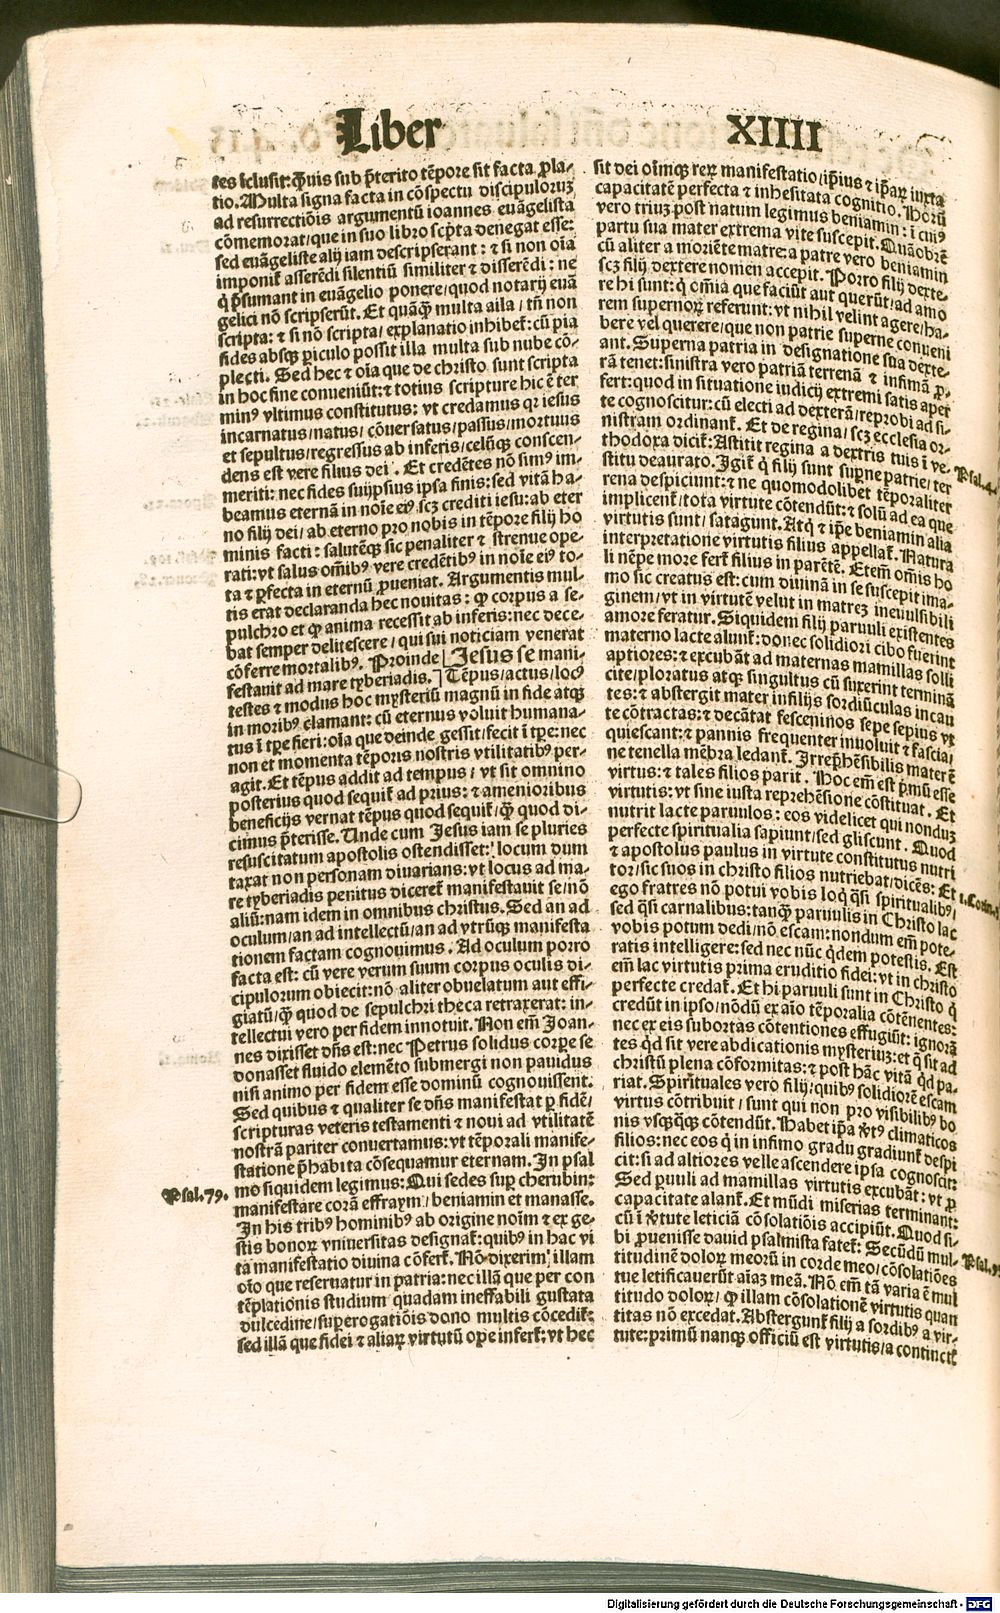 Liber XIIII
tes īclusit: q̄uis sub p̄terito tēpore sit facta ꝓla-
tio. Multa signa facta in cōspectu discipuloruꝫ
ad resurrectiōis argumentū ioannes euāgelista
cōmemorat/que in suo libro scp̄ta denegat esse:
sed euāgeliste alij iam descripserant: ⁊ si non oīa
imponit̄ asserēdi silentiū similiter ⁊ disserēdi: ne
q̄ p̄sumant in euāgelio ponere/quod notarij euā
gelici nō scripserūt. Et quāq̄ multa aila/ tn̄ non
scripta: ⁊ si nō scripta/ explanatio inhibet̄: cū pia
fides absqꝫ piculo possit illa multa sub nube cō-
plecti. Sed hec ⁊ oīa que de christo sunt scripta
in hoc fine conueniūt: ⁊ totius scripture hic ē ter
minꝰ vltimus constitutus: vt credamus qꝛ iesus
incarnatus/natus/ cōuersatus/passus/mortuus
et sepultus/regressus ab inferis/celūqꝫ conscen-
dens est vere filius dei. Et credētes nō simꝰ im-
meriti: nec fides suijpsius ipsa finis: sed vitā ha-
beamus eternā in noīe eiꝰ/ scꝫ crediti iesu: ab eter
no filij dei/ ab eterno pro nobis in tēpore filij ho
minis facti: salutēqꝫ sic penaliter ⁊ strenue ope-
rati: vt salus om̄ibꝰ vere credētibꝰ in noīe eiꝰ to-
ta ⁊ ꝑfecta in eternū ꝓueniat. Argumentis mul-
tis erat declaranda hec nouitas: ꝙ corpus a se-
pulchro et ꝙ anima recessit ab inferis: nec dece-
bat semper delitescere/ qui sui noticiam venerat
cōferre mortalibꝰ. Proinde [Jesus se mani-
festauit ad mare tyberiadis.] Tēpus/actus/locꝰ
testes ⁊ modus hoc mysteriū magnū in fide atqꝫ
in moribꝰ clamant: cū eternus voluit humana-
tus ī tꝑe fieri: oīa que deinde gessit/fecit ī tꝑe: nec
non et momenta tēporis nostris vtilitatibꝰ per-
agit. Et tēpus addit ad tempus/ vt sit omnino
posterius quod sequit̄ ad prius: ⁊ amenioribus
beneficijs vernat tēpus quod sequit̄/ q̄ quod di-
cimus p̄terisse. Unde cum Jesus iam se pluries
resuscitatum apostolis ostendisset: locum dum
taxat non personam diuarians: vt locus ad ma-
re tyberiadis penitus diceret̄ manifestauit se/nō
aliū: nam idem in omnibus christus. Sed an ad
oculum/an ad intellectū/an ad vtrūqꝫ manifesta
tionem factam cognouimus. Ad oculum porro
facta est: cū vere verum suum corpus oculis di-
cipulorum obiecit: nō aliter obuelatum aut effi-
giatū/ q̄ quod de sepulchri theca retraxerat: in-
tellectui vero per fidem innotuit. Non em̄ Joan-
nes dixisset dn̄s est: nec Petrus solidus corpe se
donasset fluido elemēto submergi non pauidus
nisi animo per fidem esse dominū cognouissent.
Sed quibus ⁊ qualiter se dn̄s manifestat ꝑ fidē/
scripturas veteris testamenti ⁊ noui ad vtilitatē
nostrā pariter conuertamus: vt tēporali manife-
statione p̄habita cōsequamur eternam. In psal
Psal.79. mo siquidem legimus: Qui sedes sup cherubin:
manifestare corā effraym/ beniamin et manasse.
In his tribꝰ hominibꝰ ab origine noīm ⁊ ex ge-
stis bonoꝝ vniuersitas designat̄: quibꝰ in hac vi
ta manifestatio diuina cōfert̄. Nō dixerim/ illam
oīo que reseruatur in patria: nec illā que per con
tēplationis studium quadam ineffabili gustata
dulcedine/superogatiōis dono multis cōcedit̄:
sed illā que fidei ⁊ aliaꝝ virtutū ope infert̄: vt hec
sit dei oīmqꝫ reꝝ manifestatio/ip̄ius ⁊ ip̄aꝝ iuxta
capacitatē perfecta ⁊ inhesitata cognitio. Horū
vero triuꝫ post natum legimus beniamin: ī cuiꝰ
partu sua mater extrema vite suscepit. Quāobrē
cū aliter a moriēte matre: a patre vero beniamin
scꝫ filij dextere nomen accepit. Porro filij dexte-
re hi sunt: q̄ om̄ia que faciūt aut querūt/ad amo
rem supernoꝝ referunt: vt nihil velint agere/ha-
bere vel querere/que non patrie superne conueni
ant. Superna patria in designatione sua dexte-
rā tenet: sinistra vero patriā terrenā ⁊ infimā p̄-
fert: quod in situatione iudicij extremi satis aper
te cognoscitur: cū electi ad dexterā/reprobi ad si-
nistram ordinant̄. Et de regina/ scꝫ ecclesia or-
thodoxa dicit̄: Astitit regina a dextris tuis ī ve-
stitu deaurato. Igit̄ q̄ filij sunt sup̄ne patrie/ ter Psal.4
rena despiciunt: ⁊ ne quomodolibet tēporaliter
implicent̄/tota virtute cōtendūt: ⁊ solū ad ea que
virtutis sunt/ satagunt. Atqꝫ ⁊ ip̄e beniamin alia
interpretatione virtutis filius appellat̄. Natura
li nēpe more fert̄ filius in parētē. Etem̄ om̄is ho
mo sic creatus est: cum diuinā in se suscepit ima-
ginem/vt in virtutē velut in matreꝫ ineuulsibili
amore feratur. Siquidem filij paruuli existentes
materno lacte alunt̄: donec solidiori cibo fuerint
aptiores: ⁊ excubāt ad maternas mamillas solli
cite/ploratus atqꝫ singultus cū suxerint terminā
tes: ⁊ abstergit mater infilijs sordiūculas incau
te cōtractas: ⁊ decātat fesceninos sepe sepius vt
quiescant: ⁊ pannis frequenter inuoluit ⁊ fascia/
ne tenella mēbra ledant̄. Irrep̄hēsibilis mater ē
virtus: ⁊ tales filios parit. Hoc em̄ est p̄mū esse
virtutis: vt sine iusta reprehēsione cōstituat. Et
nutrit lacte paruulos: eos videlicet qui nonduꝫ
perfecte spiritualia sapiunt/sed gliscunt. Quod
⁊ apostolus paulus in virtute constitutus nutri
tor/sic suos in christo filios nutriebat/dicēs: Et
ego fratres nō potui vobis loq̄ q̄si spiritualibꝰ/ 1.Corin.3
sed q̄si carnalibus: tanq̄ paruulis in Christo lac
vobis potum dedi/nō escam: nondum em̄ pote-
ratis intelligere: sed nec nūc q̄dem potestis. Est
em̄ lac virtutis prima eruditio fidei: vt in christo
perfecte credat̄. Et hi paruuli sunt in Christo q̄
credūt in ipso/nōdū ex aīo tēporalia cōtēnentes:
nec ex eis subortas cōtentiones effugiūt: ignorā
tes q̄d sit vere abdicationis mysteriuꝫ: et q̄ sit ad
christū plena cōformitas: ⁊ post hāc vitā q̄d pa-
riat. Spirituales vero filij/quibꝰ solidiorē escam
virtus cōtribuit/ sunt qui non pro visibilibꝰ bo
nis vsqꝫq̄qꝫ cōtendūt. Habet ip̄a v̄tꝰ climaticos
filios: nec eos q̄ in infimo gradu gradiunt̄ despi
cit: si ad altiores velle ascendere ipsa cognoscit:
Sed puuli ad mamillas virtutis excubāt: vt ꝓ
capacitate alant̄. Et mūdi miserias terminant:
cū ī v̄tute leticiā cōsolatiōis accipiūt. Quod si-
bi ꝓuenisse dauid psalmista fatet̄: Secūdū mul- Psal.93
titudinē doloꝝ meorū in corde meo/ cōsolatiōes
tue letificauerūt aīaꝫ meā. Nō em̄ tā varia ē mul
titudo doloꝝ/ ꝙ illam cōsolationē virtutis quan
titas nō excedat. Abstergunt̄ filij a sordibꝰ a vir-
tute: primū nanqꝫ officiū est virtutis/a continct̄
Digitalisierung gefördert durch die Deutsche Forschungsgemeinschaft - DFG